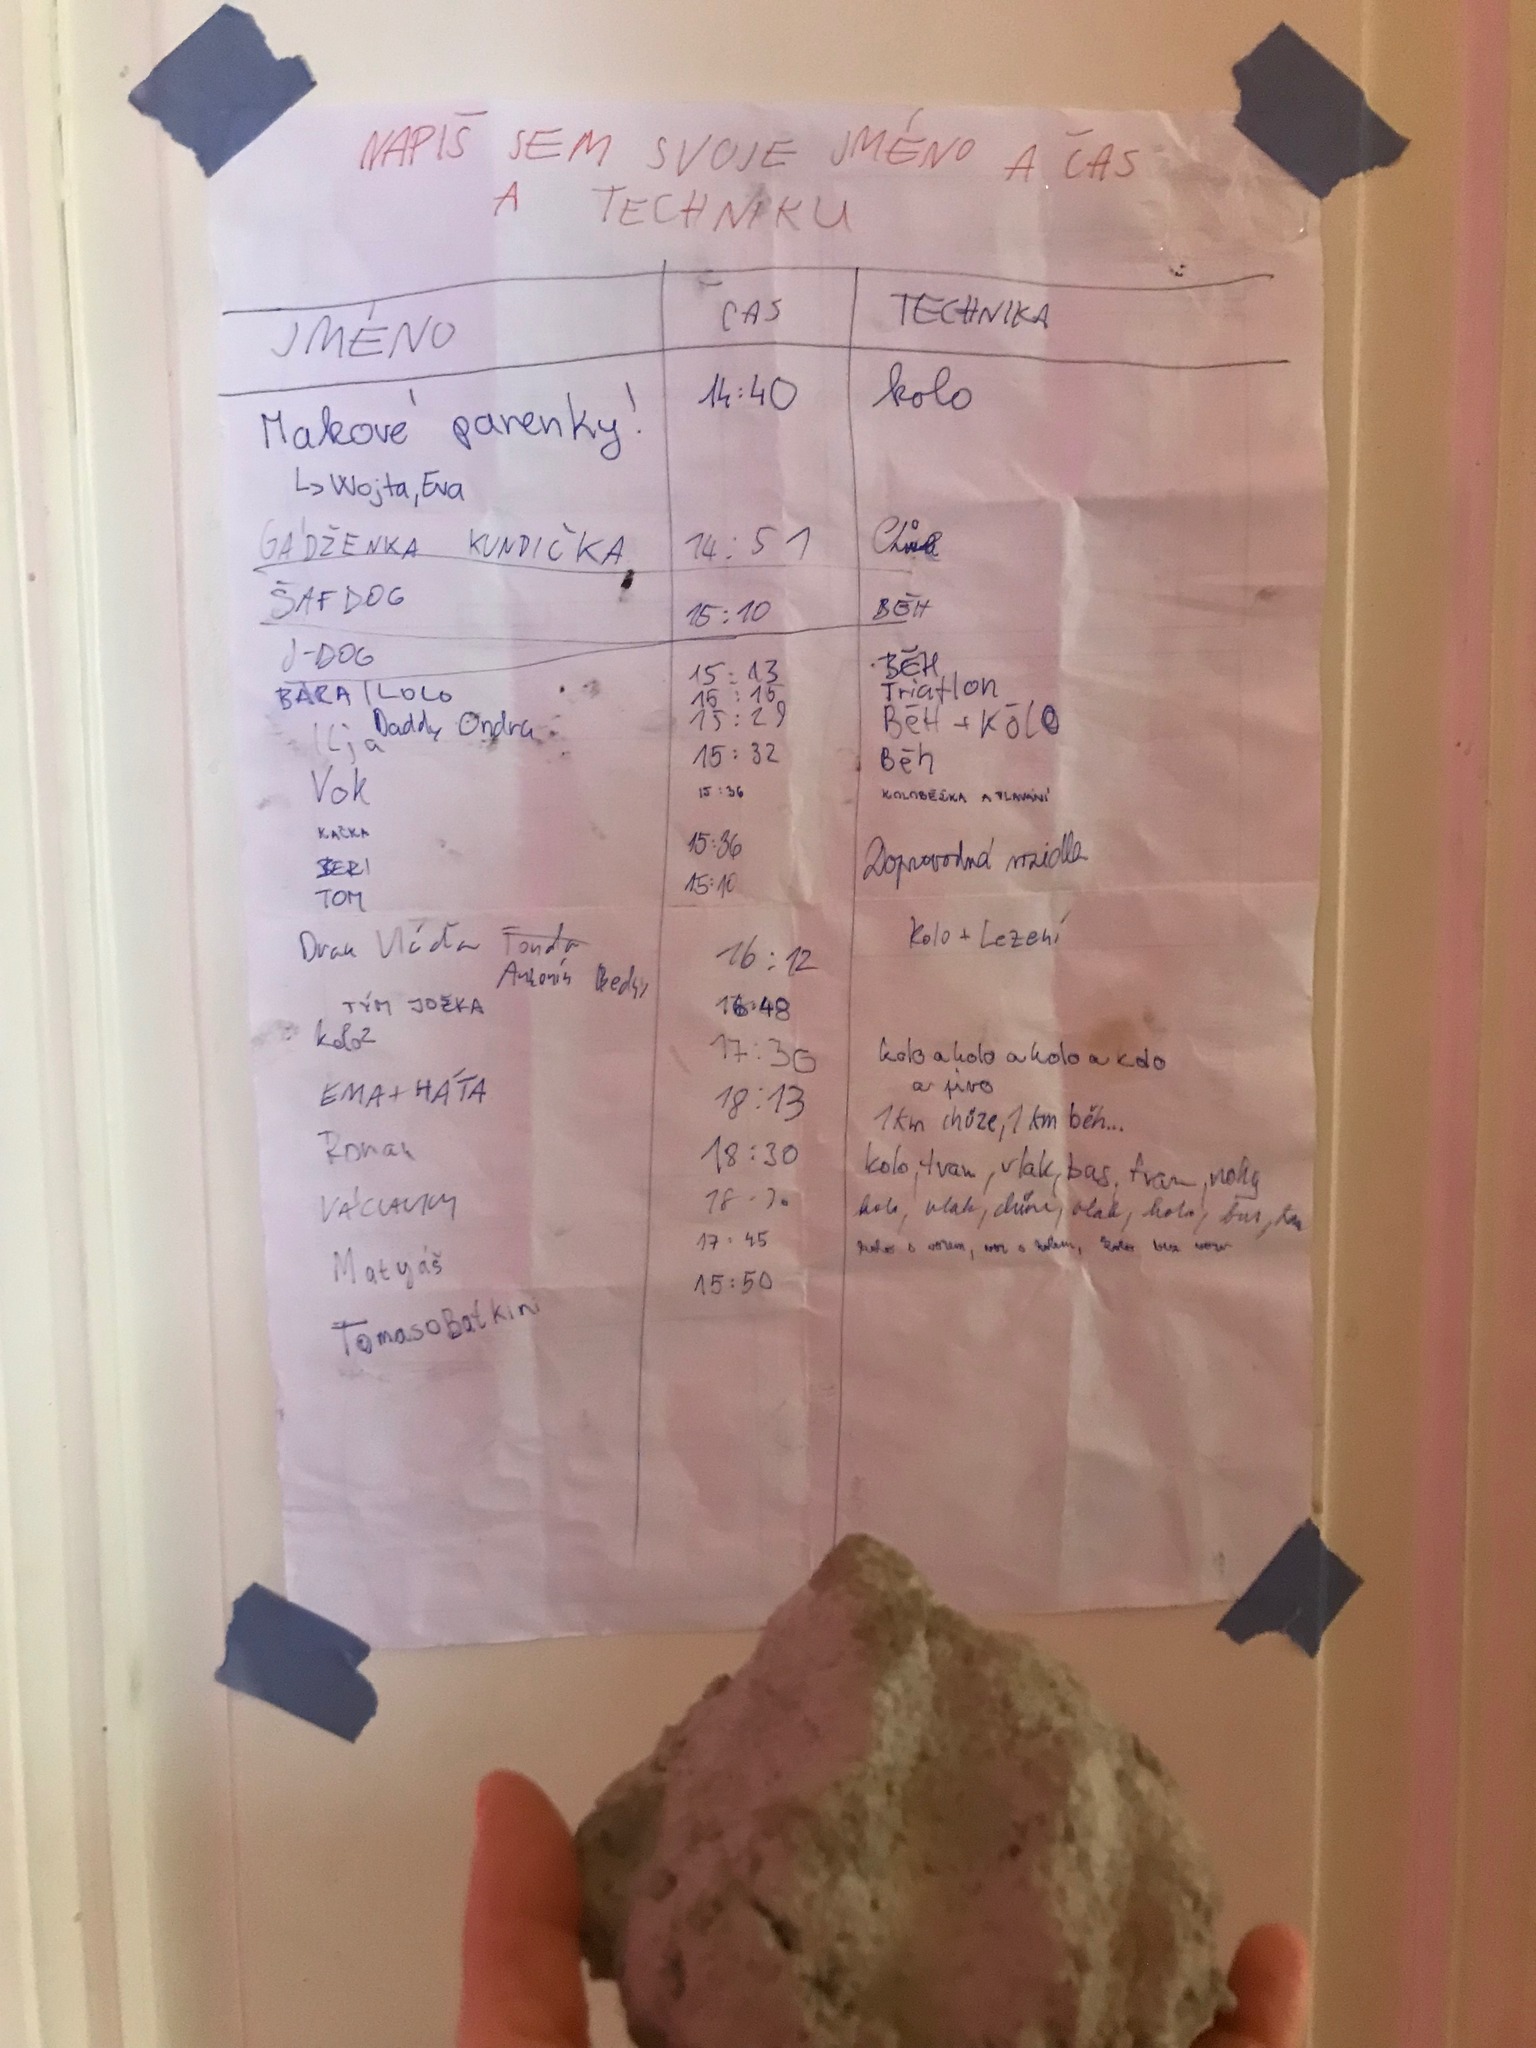 NAPIŠ SEM SVOJE JMÉNO A ČAS
A TECHNIKU
JMÉNO ČAS TECHNIKA
Makové parenky! 14:40 kolo
↳ Wojta, Eva
GÁDŽENKA KUNDIČKA 14:51
ŠAFDOG 15:10 BĚH
J-DOG 15:13 BĚH
BÁRA | LOLO 15:15 Triatlon
Ilja Daddy Ondra 15:29 BĚH + KOLO
Vok 15:32 Běh
KAČKA 15:36 KOLOBĚŽKA A PLAVÁNÍ
BERI 15:36 Doprovodná vozidla
TOM 15:10
Drak Vláďa Tonda 16:12 Kolo + Lezení
Antonín
TÝM JOŽKA 16:48
17:36 kolo a kolo a kolo a kolo
a pivo
EMA + HÁŤA 18:13 1 km chůze, 1 km běh...
Roman 18:30 kolo, tram, vlak, bus, tram, nohy
VÁCLAVKY 18:30 kolo, vlak, chůze, vlak, kolo, bus,
Matyáš 17:45
TomasoBatkini 15:50